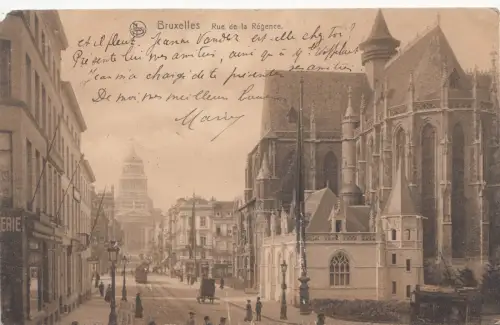 Bruxelles Rue de la Régence.
et il pleut, Jeanne Vander est elle chez toi?
Présente lui mes amitiés, ainsi qu'à Mr
Jean m'a chargé de te présenter ses amitiés
De moi mes meilleurs
Mary
ERIE